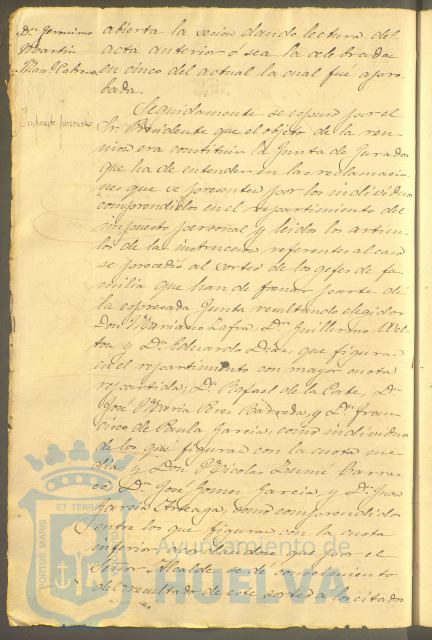 Dn. Geronimo
Martin
Man.l Cabrera
Impuesto personal
abierta la sesion dando lectura del
acta anterior ó sea la celebrada
en cinco del actual la cual fue apro-
bada.
Seguidamente se espuso por el
Sr. Presidente que el objeto de la reu-
nion era constituir la Junta de Jurados
que ha de entender en las reclamacio-
nes que se presenten por los individuos
comprendidos en el repartimiento del
impuesto personal y leidos los articu-
los de la instruccion referentes al caso
se procedió al sorteo de los gefes de fa-
milia que han de formar parte de
la espresada Junta resultando elegidos
Don Mariano Zafra, Dn. Guillermo
y Dn. Eduardo Diaz, que figuran
en el repartimiento con mayor cuota
repartida; Dn. Rafael de la Corte, Dn.
José Maria Perez Barreda, y Dn. Fran-
cisco de Paula Garcia, como individuos
de los que figuran con la cuota me-
dia y Don Nicolas
Dn. Jose Gomez Garcia, y Dn. Juan
Garcia Arteaga, como comprendidos
entre los que figuran con la cuota
inferior acordandose que por el
Señor Alcalde se dé conocimiento
del resultado de este sorteo á los citados
PORTUS MARIS ET TERRAE
Ayuntamiento de
HUELVA